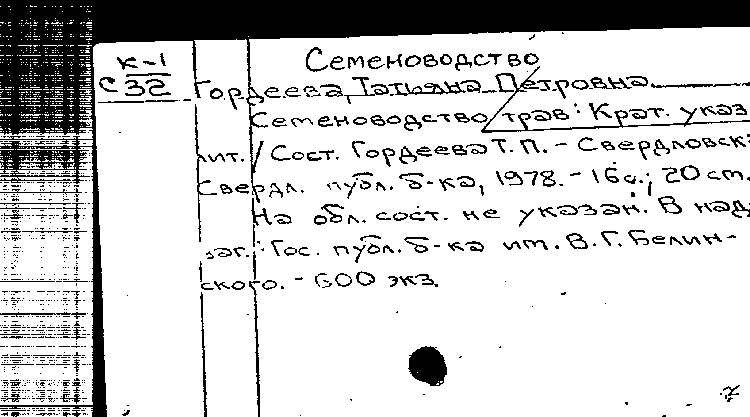 к-1
С32
Семеноводство
Гордеева, Татьяна Петровна.
Семеноводство трав: Крат. указ.
лит. / Сост. Гордеева Т. П. - Свердловск:
Свердл. публ. б-ка, 1978. - 16 с.; 20 cm.
На обл. сост. не указан. В над-
заг.: Гос. публ. б-ка им. В. Г. Белин-
ского. - 600 экз.